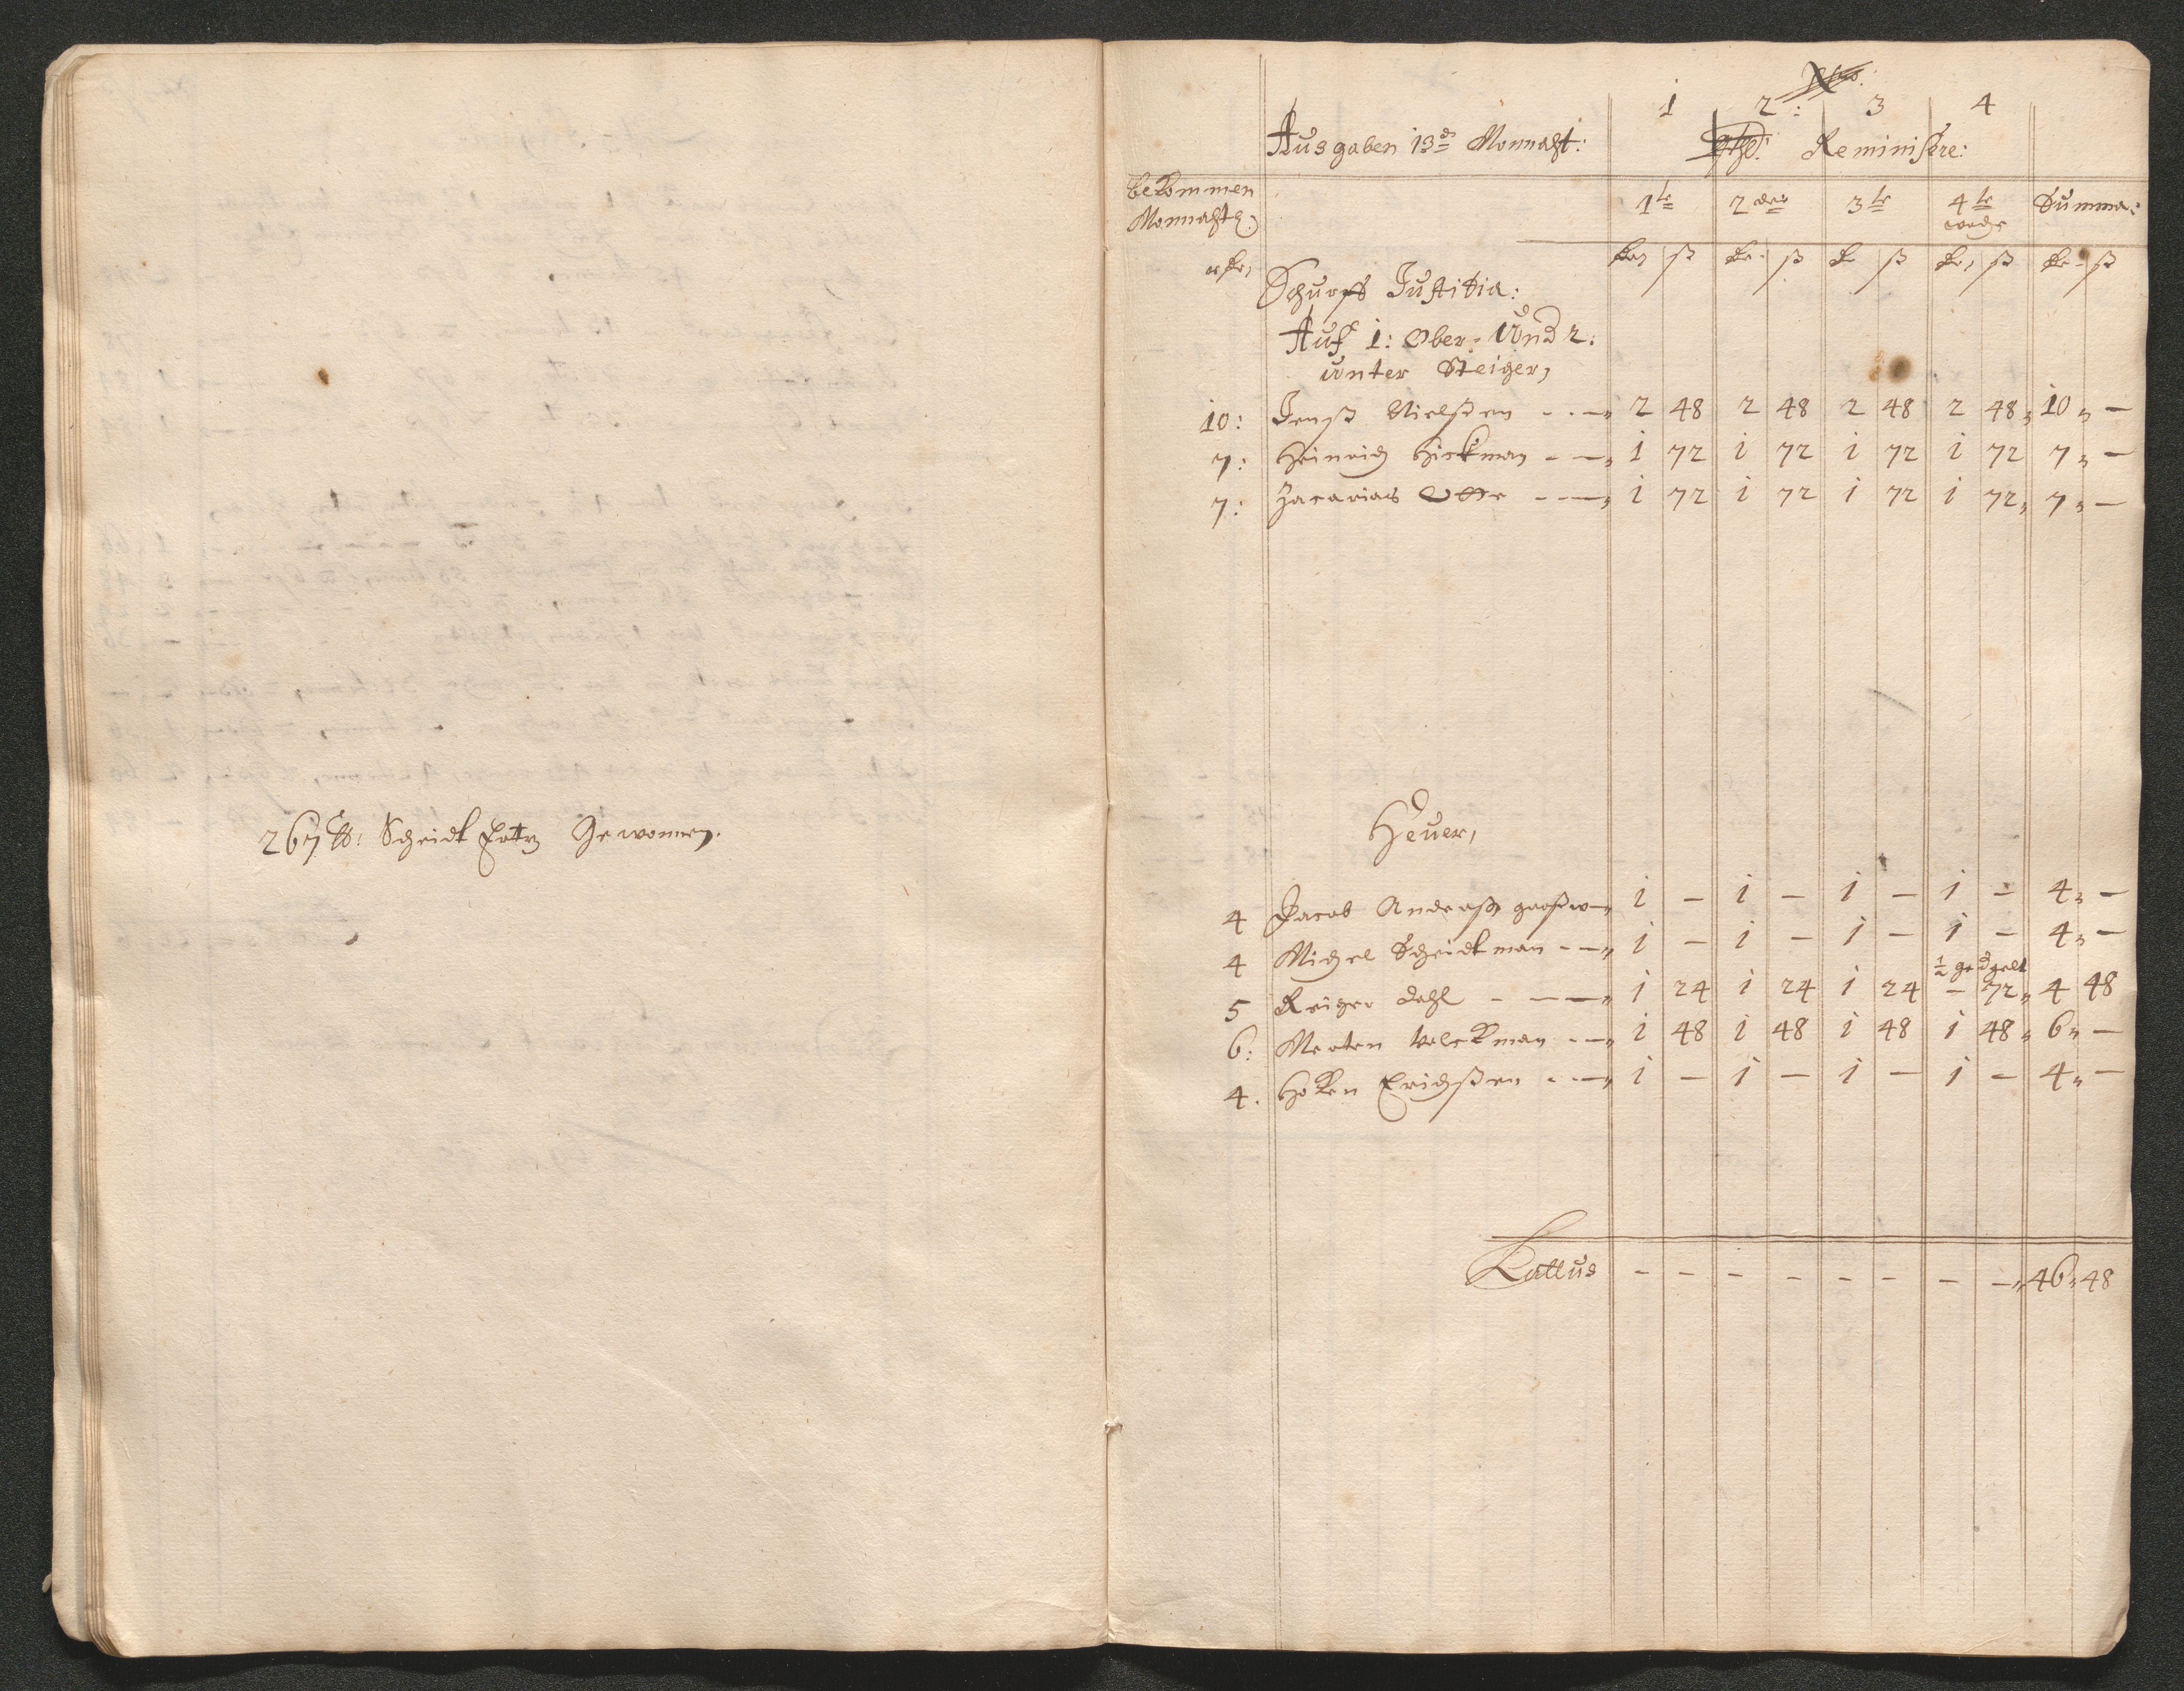 267 : Scheidt Ertz Gewonnen.
1 2: 3 4
Ausgaben 13de Monnaht: Reminissere:
bekommen
Monnahtl.
1te 2der 3te 4te Summa:
woche
ß ß ß ß ß
Schurff Justitia:
Auf 1: Ober- Und 2:
unter Steiger,
10: Jenß Nielßen - - - 2 48 2 48 2 48 2 48 10 -
7: Heinrich Hickman - - 1 72 1 72 1 72 1 72 7 -
7: Zacarias Otte - - - 1 72 1 72 1 72 1 72 7 -
Heuer,
4 Jacob Anderß 1 - 1 - 1 - 1 - 4 -
4 Michel Scheidtman - - 1 - 1 - 1 - 1 - 4 -
1/2
5 Reiger Dahl - - - 1 24 1 24 1 24 - 72 4 48
6: Merten Volckman - - 1 48 1 48 1 48 1 48 6 -
4. Hoken Erichßen - - 1 - 1 - 1 - 1 - 4 -
Lattus - - - - - - - - 46 48